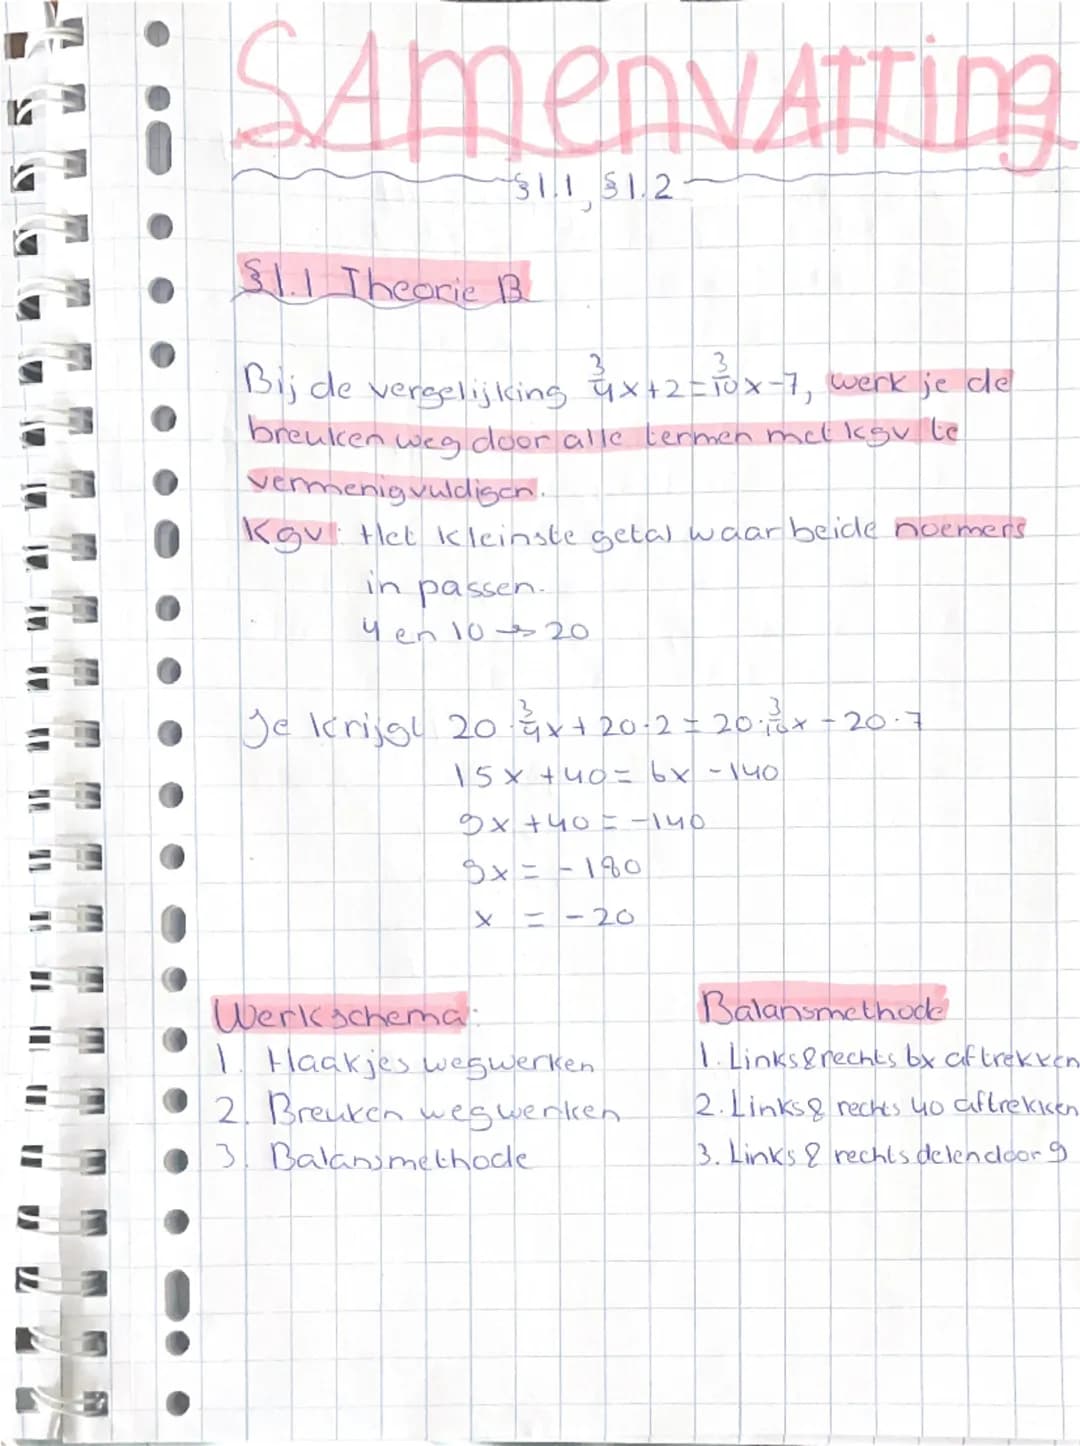 SAmenvATTing
§1.1, §1.2
§1.1 Theorie B
Bij de vergelijking 3/4x+2=3/10x-7, werk je de
breuken weg door alle termen met kgv te
vermenigvuldigen.
Kgv: Het kleinste getal waar beide noemers
in passen.
4 en 10 → 20
Je krijgt 20·3/4x+20·2=20·3/10x-20·7
15x+40=6x-140
9x+40=-140
9x=-180
x=-20
Werkschema:
1. Haakjes wegwerken
2. Breuken wegwerken
3. Balansmethode
Balansmethode
1. Links & rechts 6x aftrekken
2. Links & rechts 40 aftrekken
3. Links & rechts delen door 9